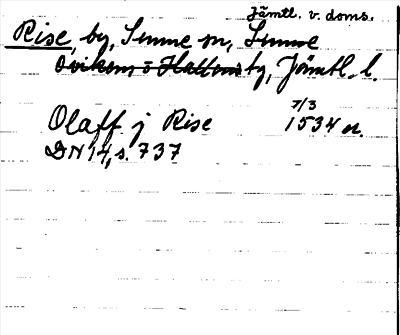 Jämtl. v. doms.
Rise, by, Sunne sn, Sunne
Ovikens o Hallens tg, Jämtl. l.
Olaff j Rise 7/3 1534 or.
DN 14, s. 737